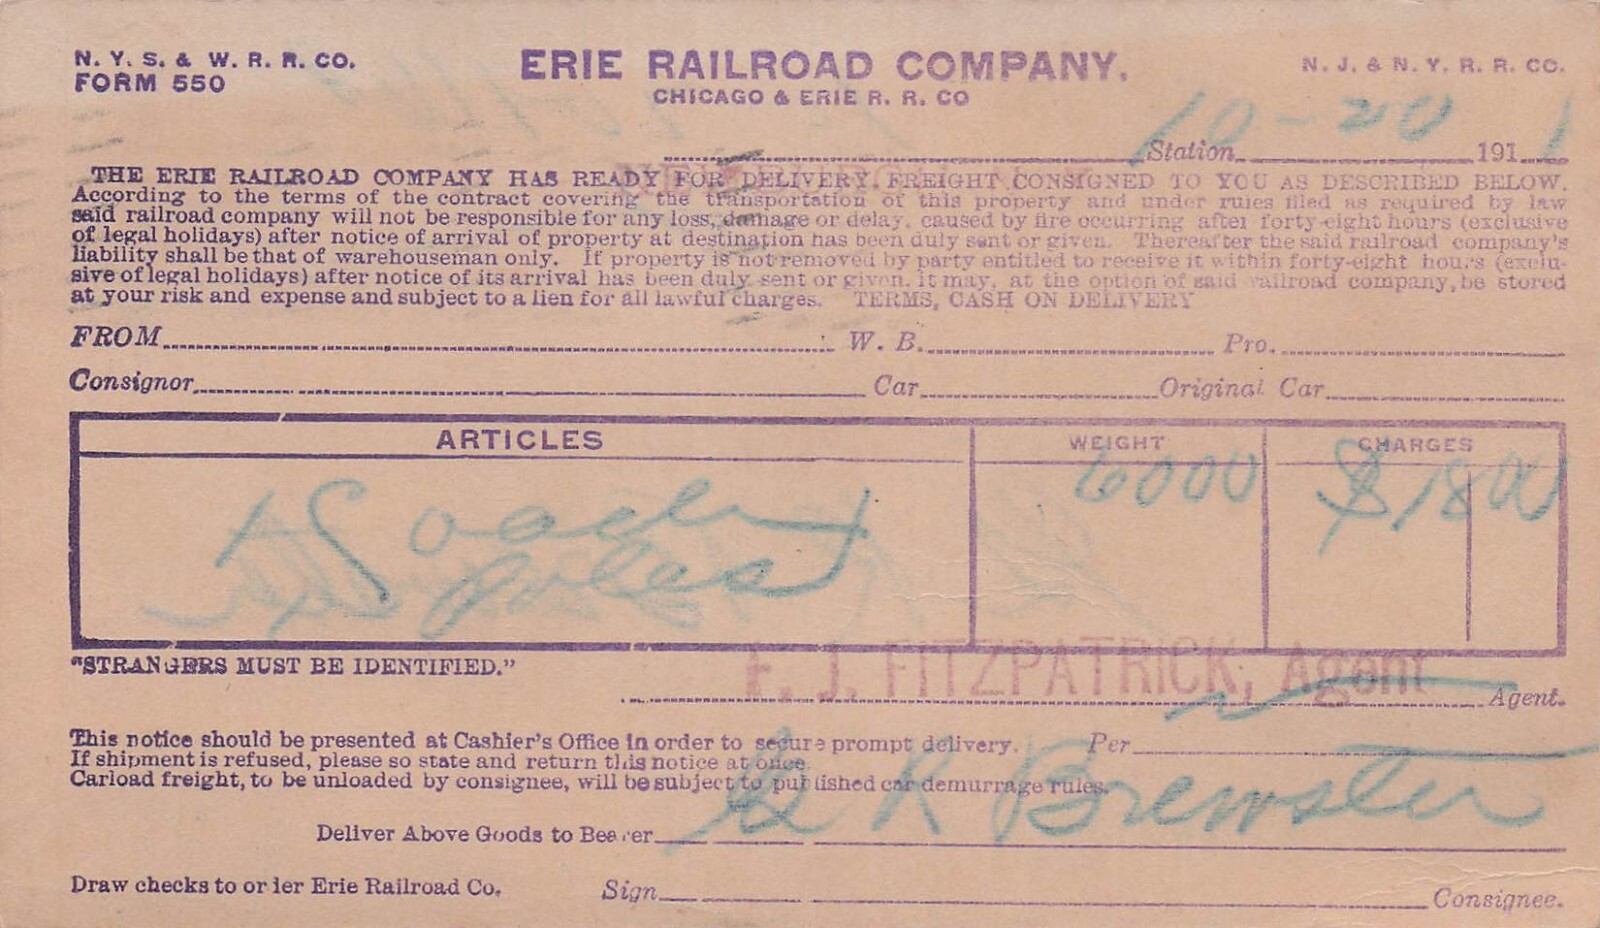 N. Y. S. & W. R. R. CO.
FORM 550
ERIE RAILROAD COMPANY.
CHICAGO & ERIE R. R. CO
N. J. & N. Y. R. R. CO.
10-20
Station 191 1
THE ERIE RAILROAD COMPANY HAS READY FOR DELIVERY, FREIGHT CONSIGNED TO YOU AS DESCRIBED BELOW.
According to the terms of the contract covering the transportation of this property and under rules filed as required by law
said railroad company will not be responsible for any loss, damage or delay, caused by fire occurring after forty-eight hours (exclusive
of legal holidays) after notice of arrival of property at destination has been duly sent or given. Thereafter the said railroad company's
liability shall be that of warehouseman only. If property is not removed by party entitled to receive it within forty-eight hours (exclu-
sive of legal holidays) after notice of its arrival has been duly sent or given. it may, at the option of said railroad company, be stored
at your risk and expense and subject to a lien for all lawful charges. TERMS, CASH ON DELIVERY
FROM W. B. Pro.
Consignor Car Original Car
ARTICLES WEIGHT CHARGES
6000 $18 00
"STRANGERS MUST BE IDENTIFIED."
F. J. FITZPATRICK, Agent
Agent.
This notice should be presented at Cashier's Office in order to secure prompt delivery. Per
If shipment is refused, please so state and return this notice at once.
Carload freight, to be unloaded by consignee, will be subject to published car demurrage rules.
R Brewster
Deliver Above Goods to Bearer
Draw checks to order Erie Railroad Co. Sign Consignee.